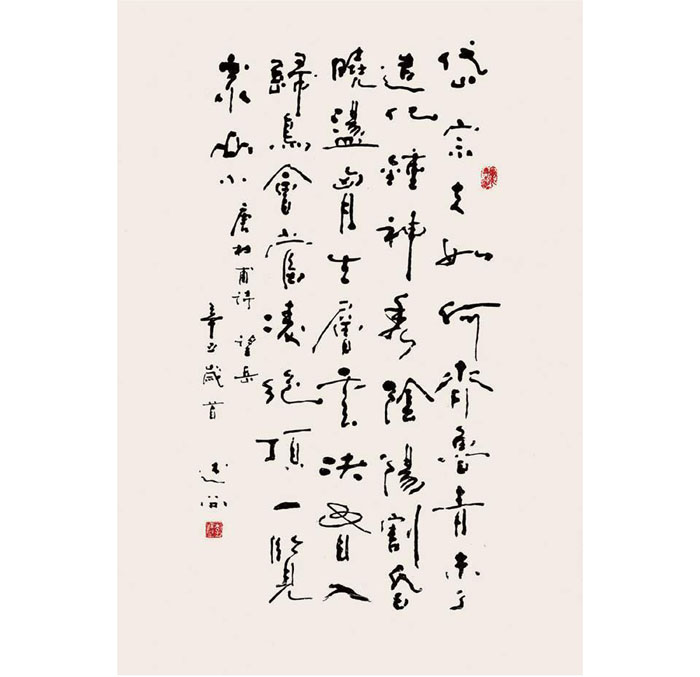 岱宗夫如何齊魯青未了
造化鍾神秀陰陽割昏
曉盪胸生層雲決眥入
歸鳥會當凌絕頂一覽
衆山小 唐杜甫詩 望岳
辛丑歲首